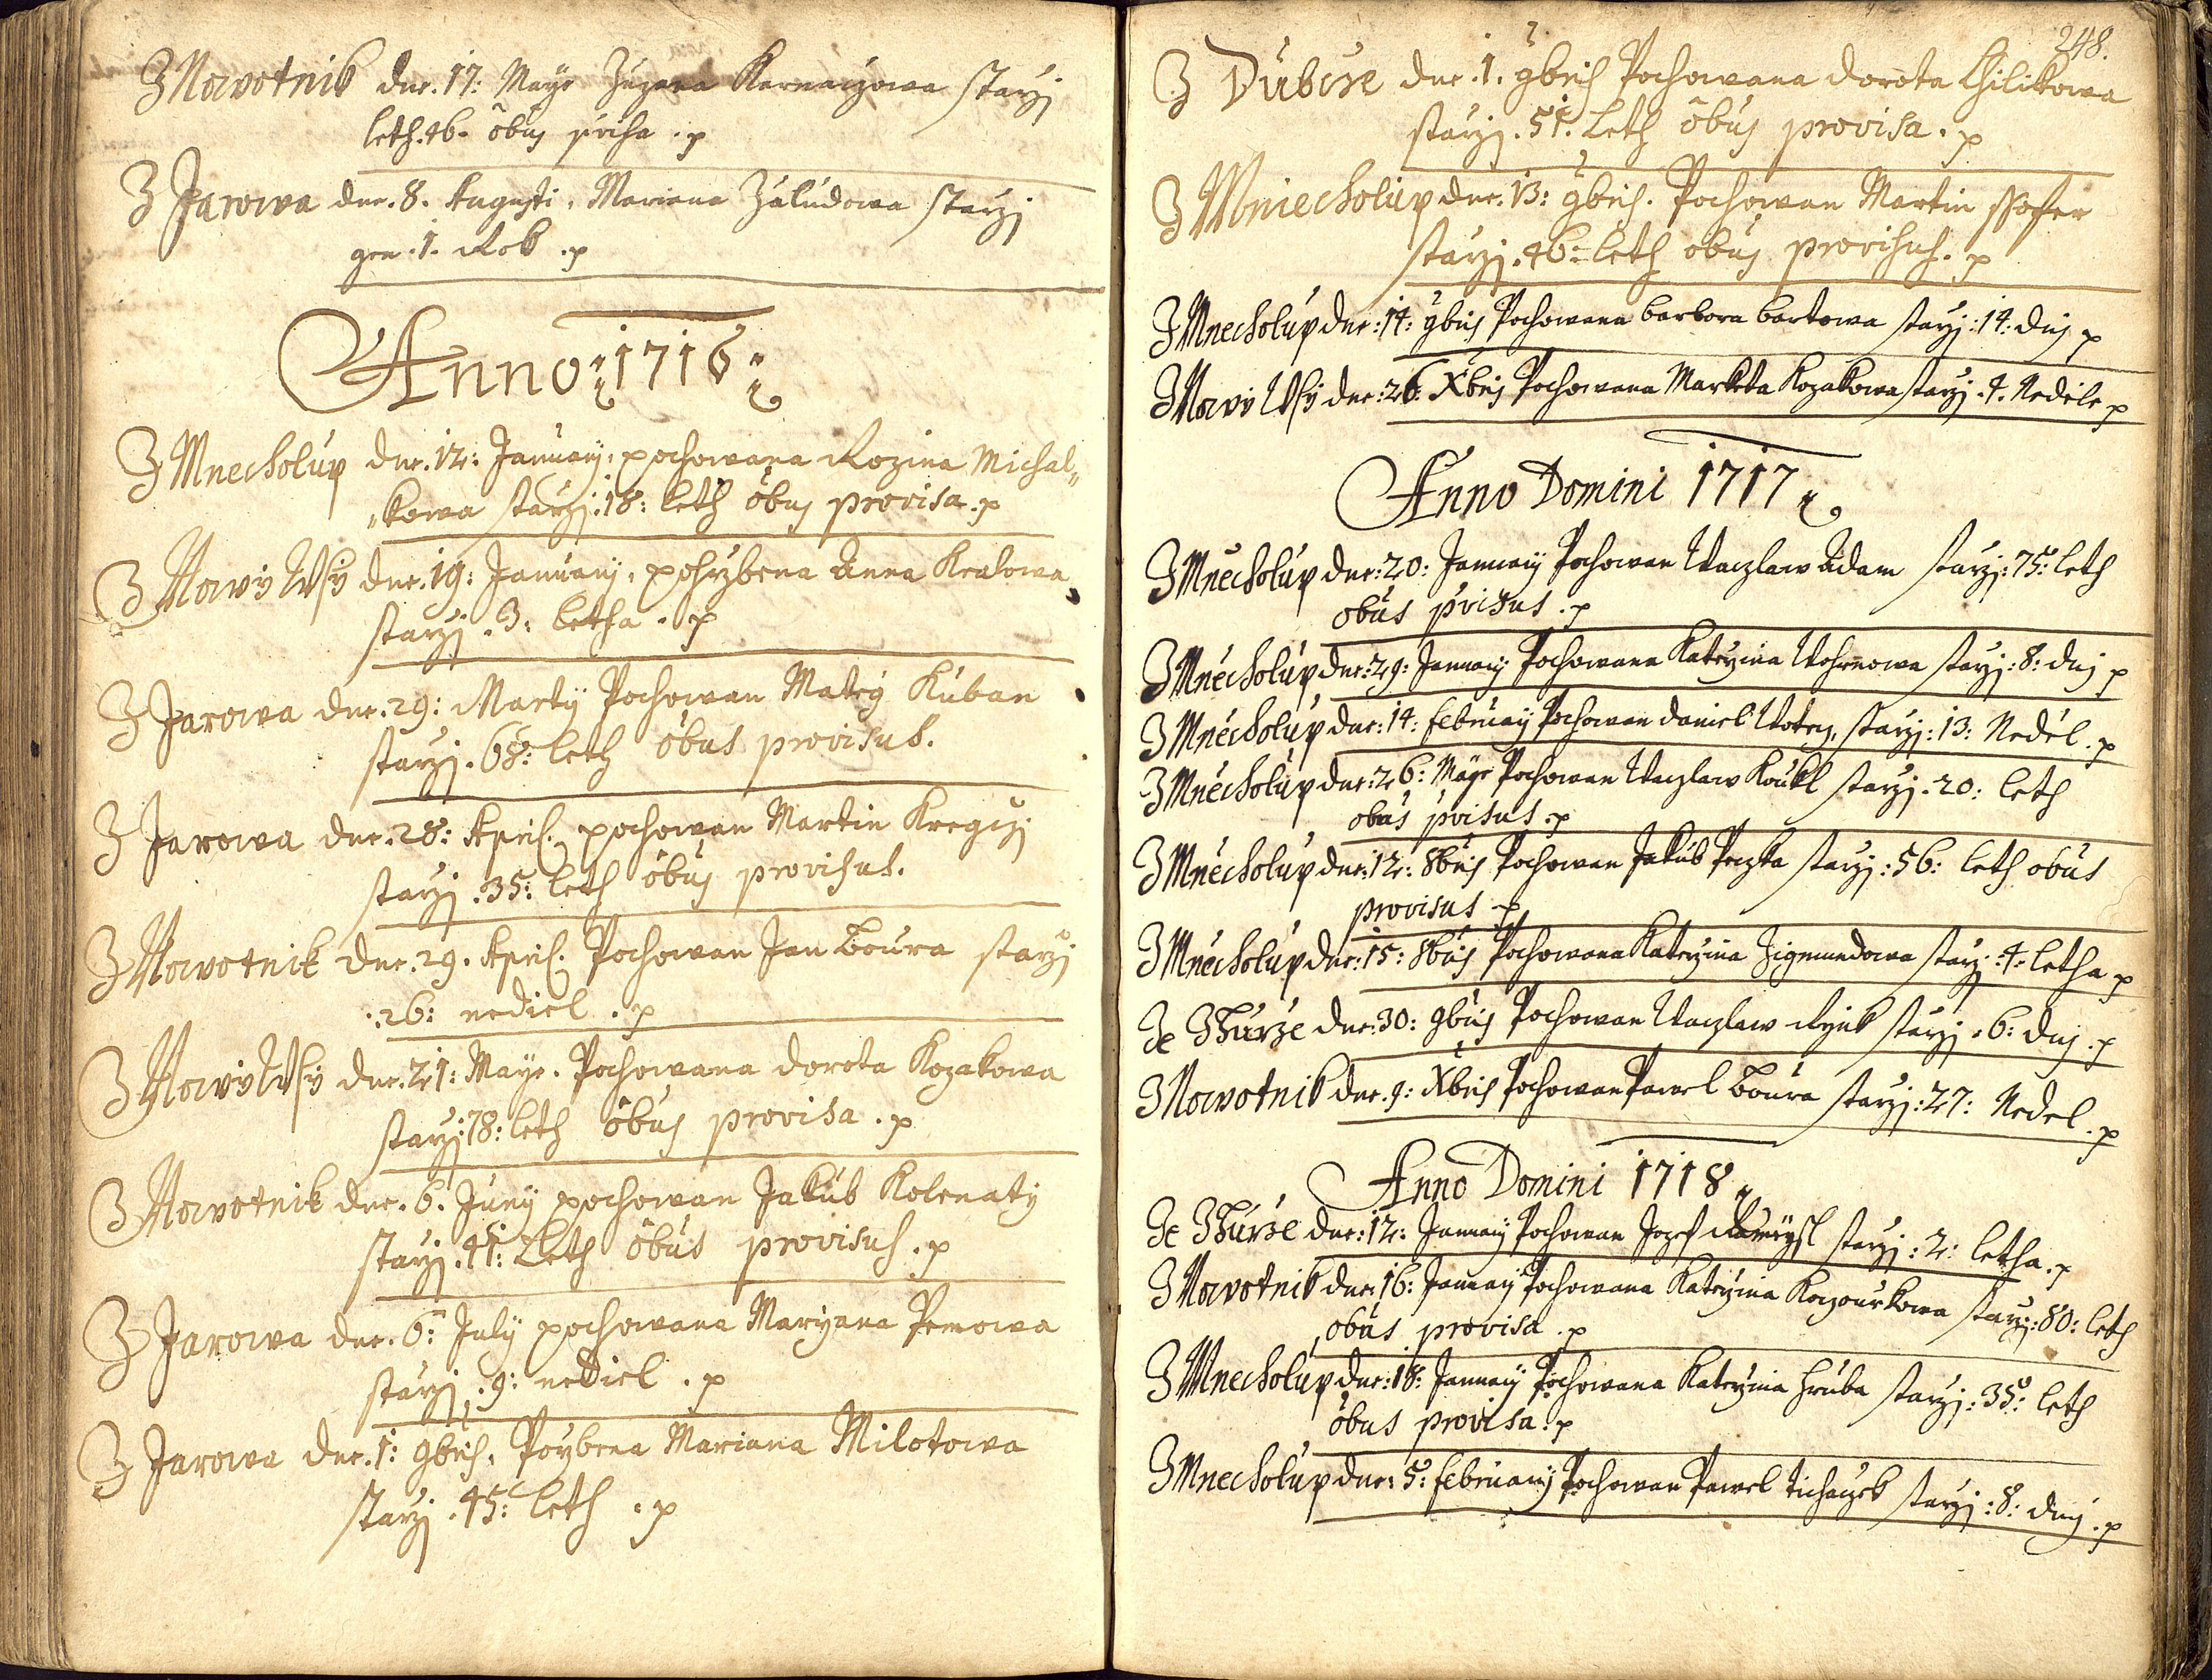 Z Nowotnik dne. 17: Maye Zuzana Karnaczowa starzj
leth. 46. obus pvisa. p
Z Jarowa dne. 8. Augusti, Mariana Zaludowa starzj
gen. 1. Rok. p
Anno: 1716:
Z Mnecholup dne. 12: January, pochowana Rozina Michal„
„kowa starzj: 18: leth obus provisa. p
Z Nowy Wsy dne. 19: January, pohrzbena Anna Kralowa
starzj. 3: letha. p
Z Jarowa dne. 29: Marty Pochowan Matieg Kuban
starzj. 68: leth obus provisus.
Z Jarowa dne. 28: April. pochowan Martin Kregczj
starzj. 35: leth obus provisus.
Z Nowotnik dne. 29. April. Pochowan Jan Boura starzj
:26: nediel. p
Z Nowy Wsy dne. 21: Maye. Pochowana dorota Kozakowa
starzj: 78: leth obus provisa. p
Z Nowotnik dne. 6. Juny pochowan Jakub Kolenaty
starzj. 41: Leth obus provisus. p
Z Jarowa dne. 6: July pochowana Maryana Pemowa
starzj. 9: nediel. p
Z Jarowa dne. 1: 9bris, Pohrzbena Mariana Milotowa
starzj. 45: leth. p
248.
Z Dubcze dne. 1. 9bris Pochowana dorota Chilikowa
starzj. 51. Leth obus provisa. p
Z Mniecholup dne. 13: 9bris. Pochowan Martin Ssofer
starzj. 46: leth obus provisus. p
Z Mnecholup dne: 14: 9bris Pochowana barbora bartowa starzj: 14: dnj p
Z Nowy Wsy dne: 26: Xbris Pochowana Marketa Kozakowa starzj. 4. Nedele p
Anno Domini 1717
Z Mnecholup dne: 20: January Pochowan Waczlaw Adam starzj: 75: leth
obus pvisus. p
Z Mnecholup dne: 29: January Pochowana Katerzina Wohrnowa starzj: 8: dnj p
Z Mnecholup dne: 14: february Pochowan daniel Wotey, starzj: 13: Nedel. p
Z Mnecholup dne: 26: Maye Pochowan Waczlaw Koukl starzj. 20: leth
obus pvisus. p
Z Mnecholup dne: 12: 8bris Pochowan Jakub Peczka starzj: 56: leth obus
provisus p
Z Mnecholup dne: 15: 8bris Pochowana Katerzina Zigmundowa starzj: 4: letha p
Ze Zhurze dne: 30: 9bris Pochowan Waczlaw Rynk starzj. 6: dnj. p
Z Nowotnik dne. 9: Xbris Pochowan Pawel Boura starzj: 27: Nedel. p
Anno Domini 1718
Ze Zhurze dne: 12: January Pochowan Jozef starzj: 2: letha. p
Z Nowotnik dne: 16: January Pochowana Katerzina Koczourkowa starzj: 80: leth
obus provisa. p
Z Mnecholup dne: 18: January Pochowana Katerzina Hruba starzj: 35: leth
obus provisa. p
Z Mnecholup dne: 5: february Pochowan Pawel Tichaczek starzj: 8: dnj. p